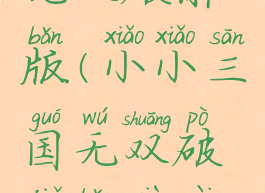 bǎn xiǎo xiǎo sān
版(小小三
guó wú shuāng pò
国无双破